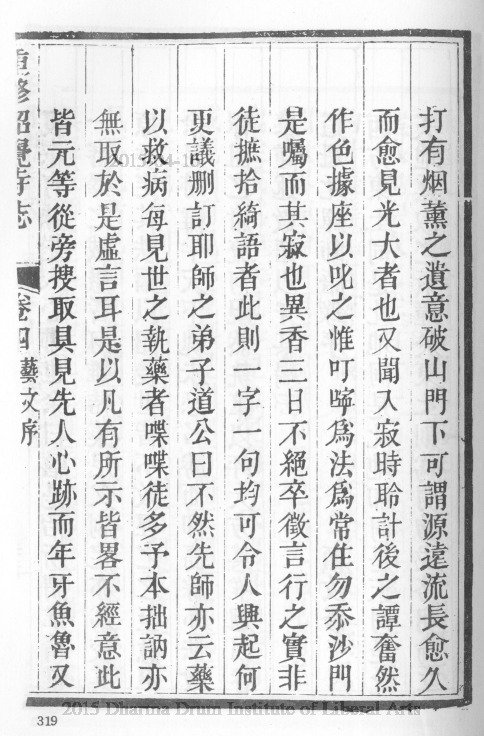 打有烟薰之遺意破山門下可謂源遠流長愈久
而愈見光大者也又聞入寂時聆計後之譚奮然
作色據座以叱之惟叮嚀爲法爲常住勿忝沙門
是囑而其寂也異香三日不絕卒徵言行之實非
徒摭拾綺語者此則一字一句均可令人興起何
更議删訂耶師之弟子道公曰不然先師亦云藥
以救病每見世之執藥者喋喋徒多予本拙訥亦
無取於是虛言耳是以凡有所示皆畧不經意此
皆元等從旁搜取具見先人心跡而年牙魚魯又
重修昭覺寺志 卷四 藝文序
319
2015 Dharma Drum Institute of Liberal Arts